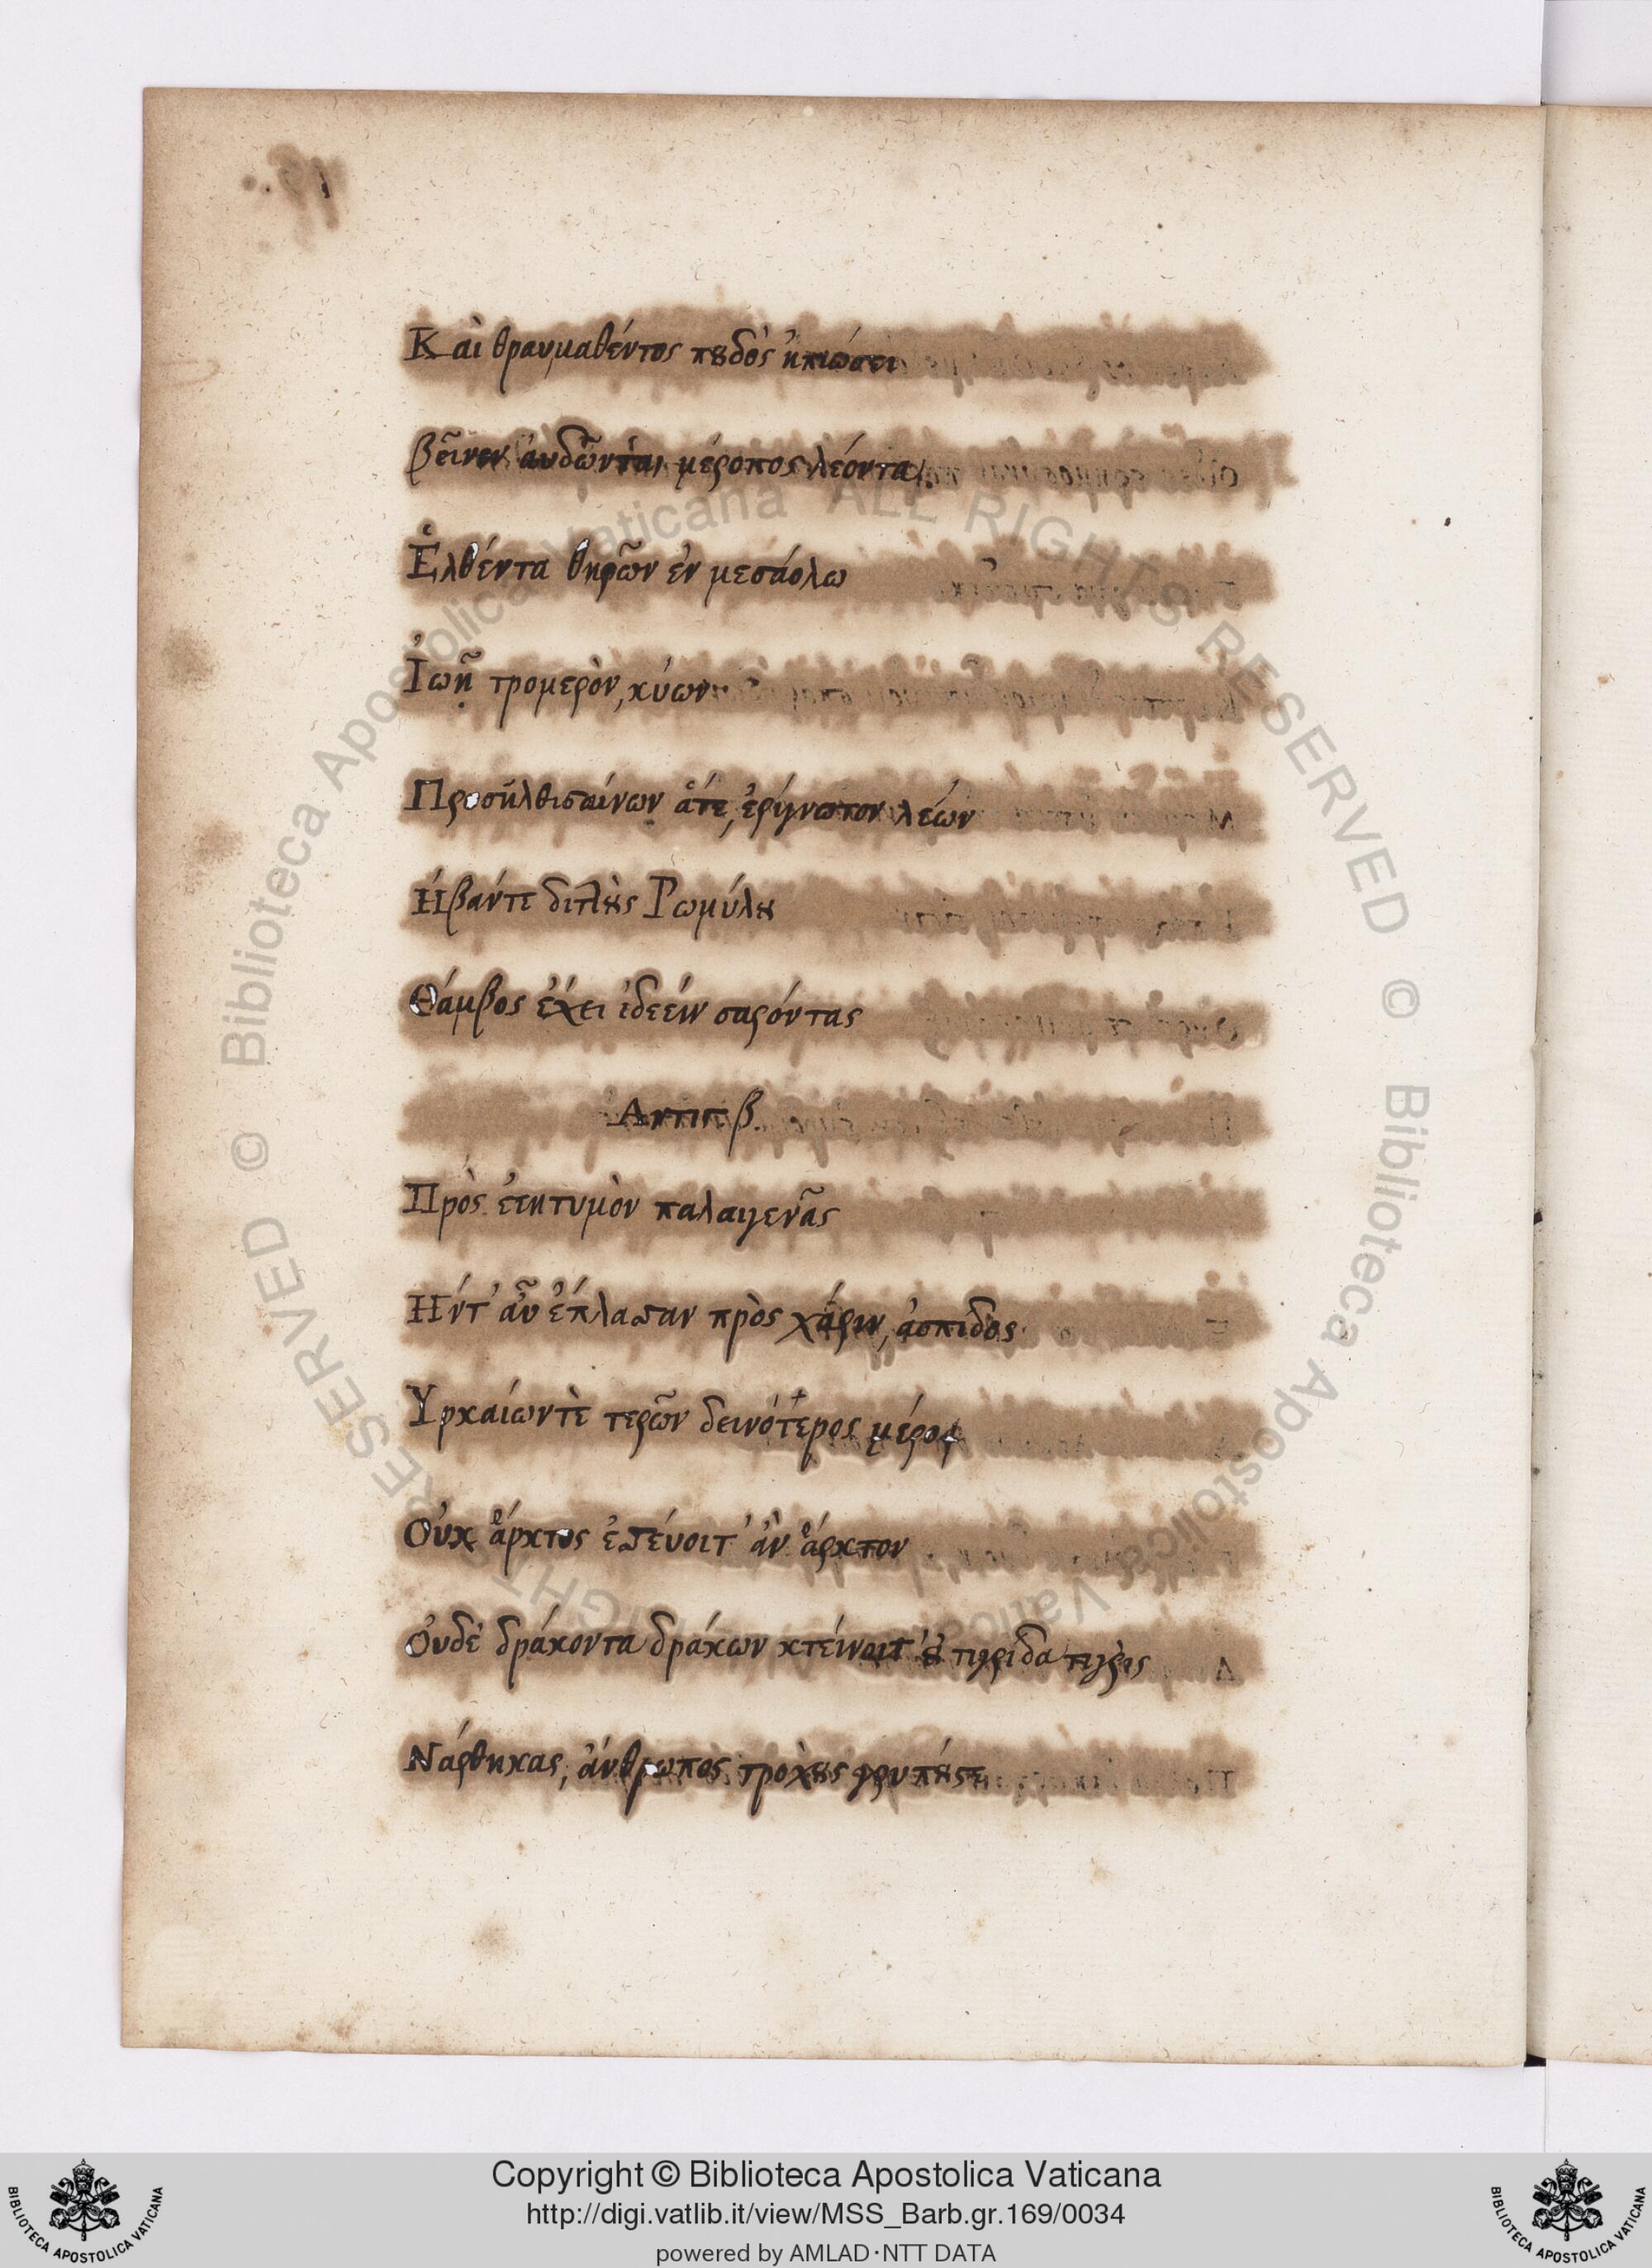 Καὶ θραυμαθέντος πȣδὸς ἠπιώσει
βεῖνεν ἀυδῶνται μέροπος λέοντα.
Ἐλθέντα θηρῶν ἐν μεσάολω
Ἰωῇ τρομερὸν, κύων
Προσῆλθισαίνων ἅτε, ἐρίγνωτον λέων
Ηβάντε διπλȣ̀ς Ρωμύλȣ
Θάμβος ἔχει ἰδεείν σαρόντας
Αντιπ β.
Πρὸς ἐτητυμὸν παλαιγενᾶς
Ηντ' ἀῦ ἔπλασαν πρὸς χάριν, ἀσπιδος
Υρκαίωντὲ τερῶν δεινότερος μέροψ
Οὐκ ἄρκτος ἐπεύοιτ' ἀν ἄρκτον
Ὀυδὲ δράκοντα δράκων κτείνοιτ' ȣ̓ τιγριδα τιγρις
Νάρθηκας, ἄνθρωπος τροχȣς γρυπȣςτε
Copyright © Biblioteca Apostolica Vaticana
http://digi.vatlib.it/view/MSS_Barb.gr.169/0034
powered by AMLAD·NTT DATA
BIBLIOTECA APOSTOLICA VATICANA
BIBLIOTECA APOSTOLICA VATICANA
© Biblioteca Apostolica Vaticana ALL RIGHTS RESERVED © Biblioteca Apostolica Vaticana ALL RIGHTS RESERVED